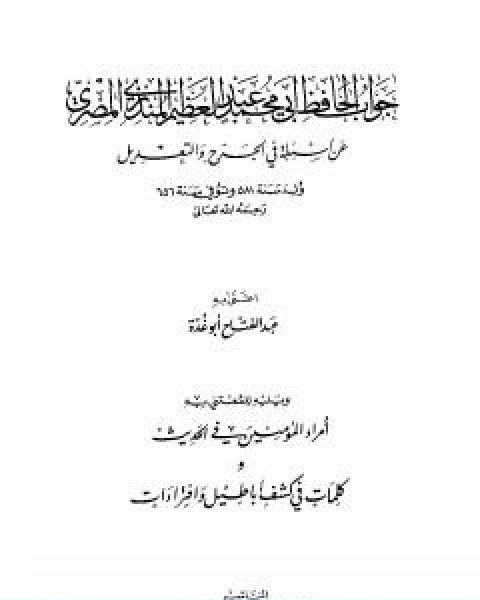 جواب الحافظ أبي محمد عبد العظيم المنذري المصري
عن أسئلة في الجرح والتعديل
ولد سنة ٥٨١ وتوفي سنة ٦٥٦
رحمه الله تعالى
اعتنى به
عبد الفتاح أبو غدة
ويليه للمعتني به
أمراء المؤمنين في الحديث
و
كلمات في كشف أباطيل وافتراءات
الناشر